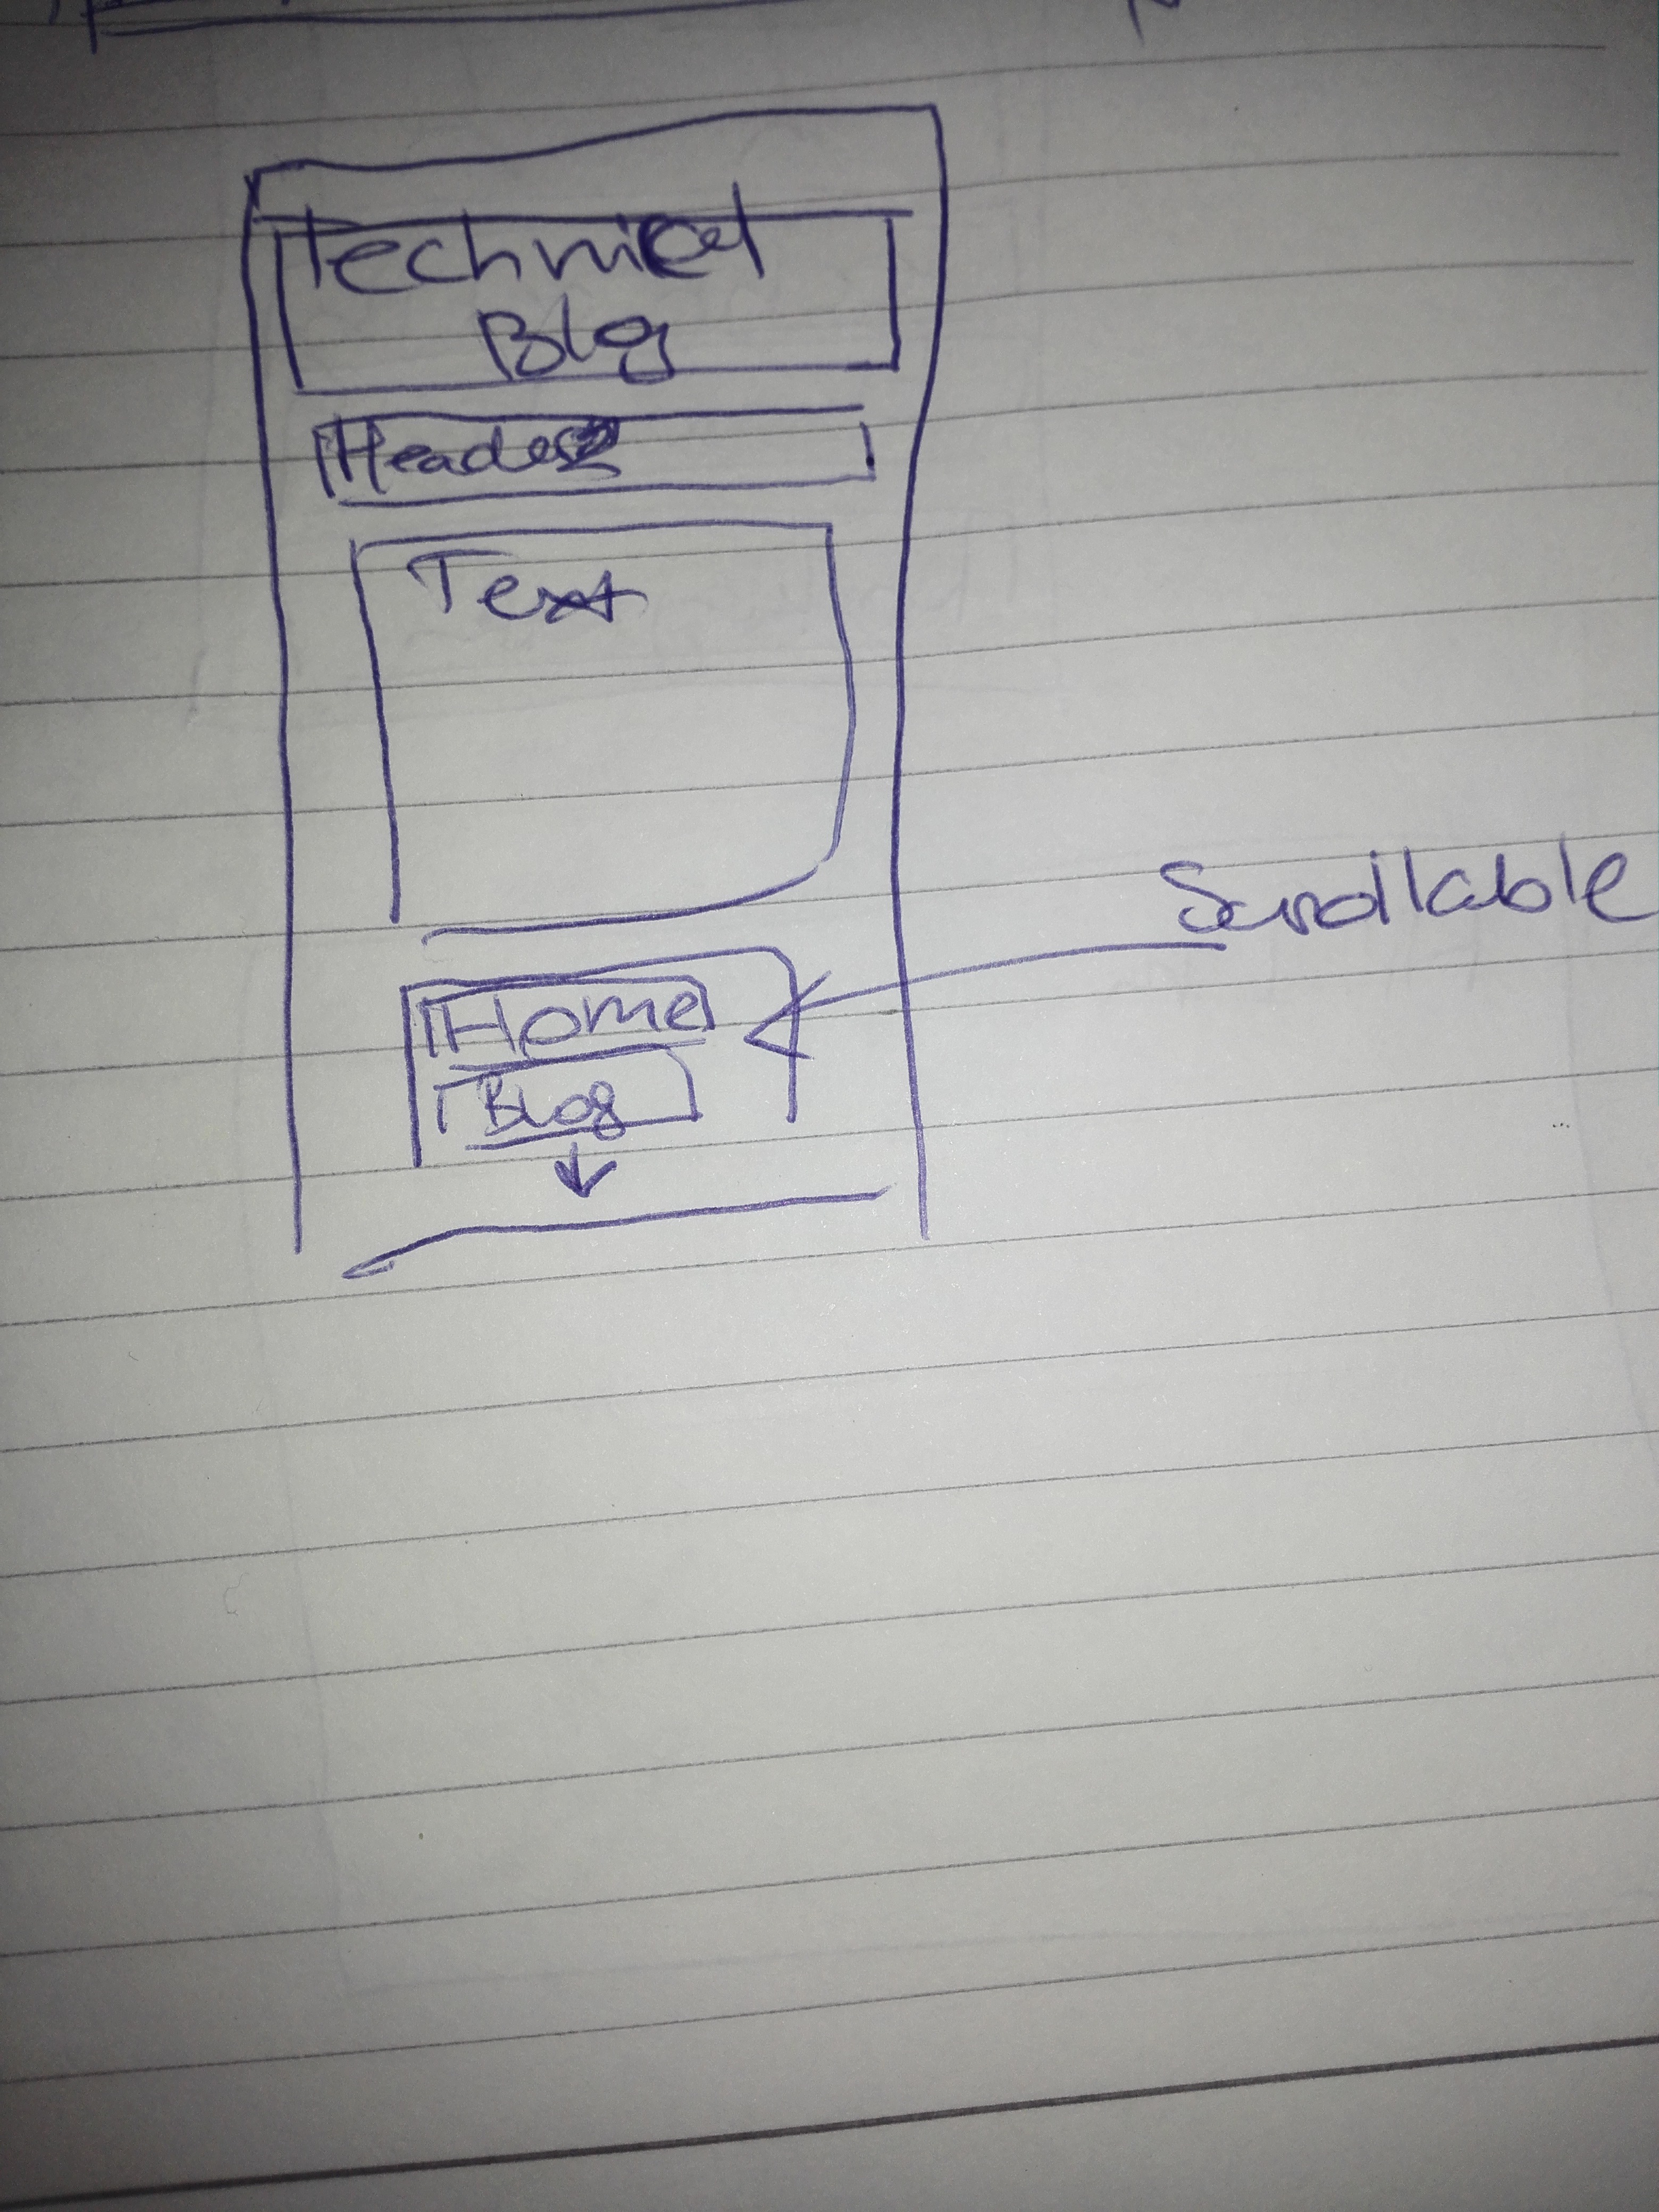 Technical
Blog
Header
Text
Scrollable
Home
Blog